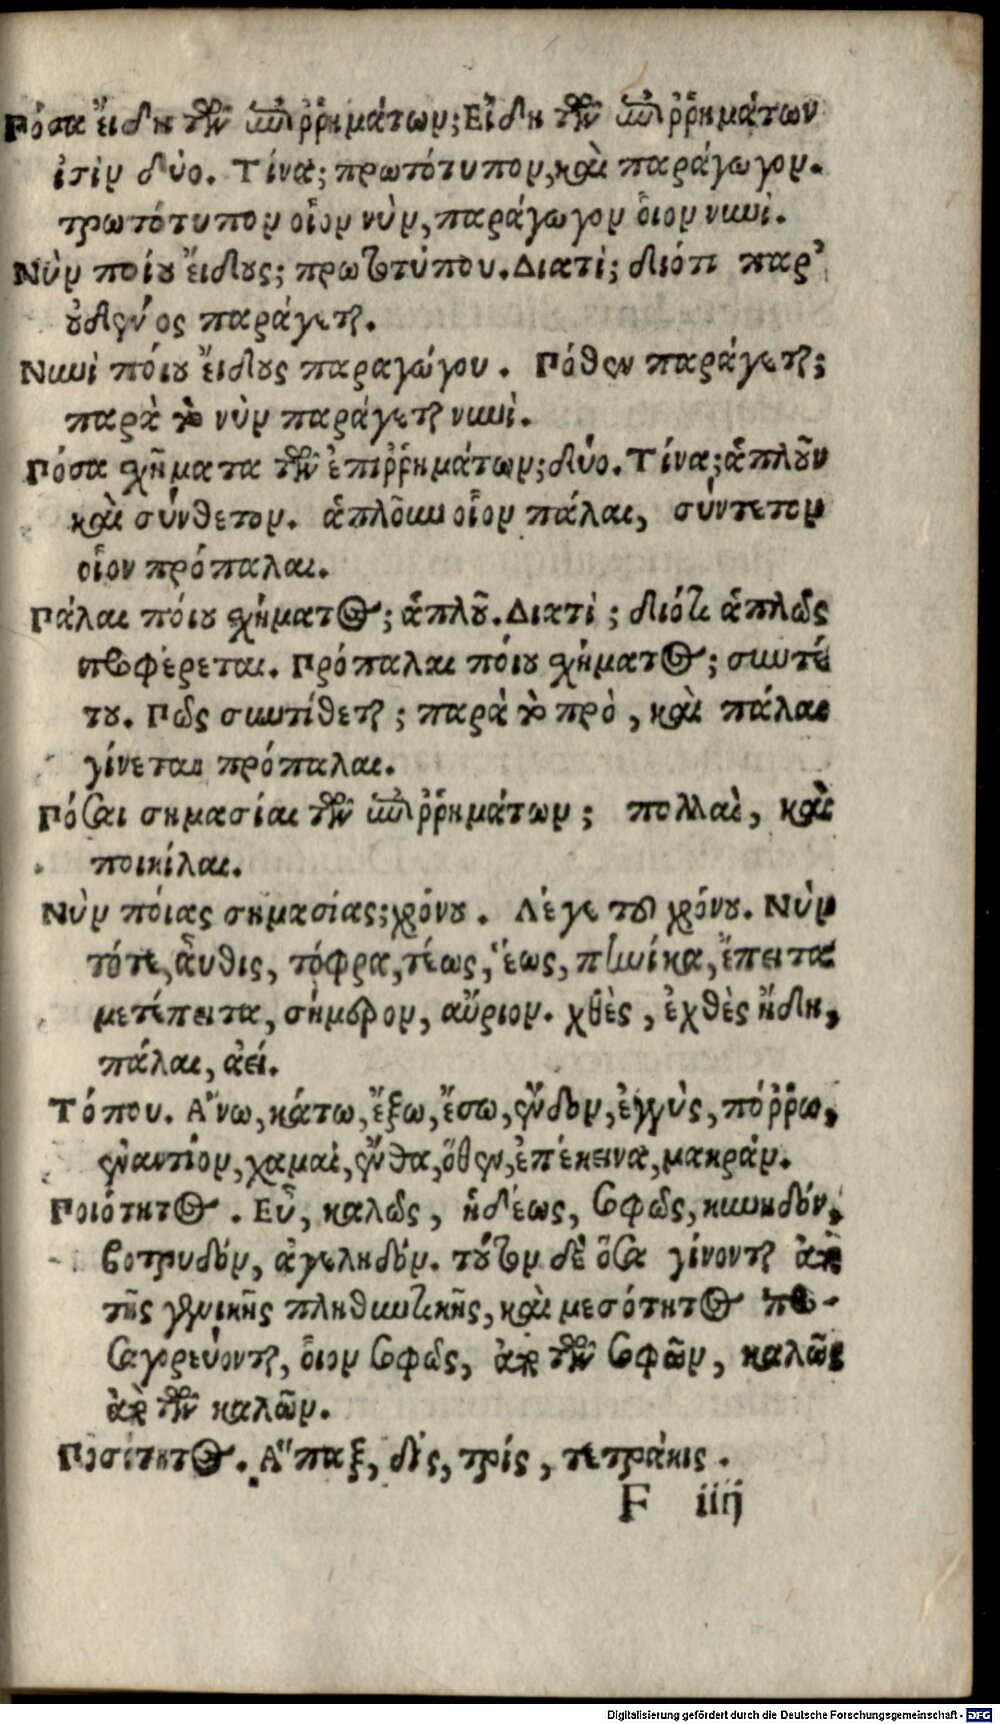 Πόσα εἴδη τῶν ἐπιῤῥημάτων; Εἴδη τῶν ἐπιῤῥημάτων
ἐισὶν δύο. Τίνα; πρωτότυπον, καὶ παράγωγον.
πρωτότυπον οἷον νὺν, παράγωγον ὅιον νυνὶ.
Νὺν ποίου ἔιδους; πρωτοτύπου. Διατί; διότι παρ'
οὐδενός παράγεται.
Νυνὶ πόιου ἔιδους παραγώγου. Πόθεν παράγεται;
παρὰ τὸ νὺν παράγεται νυνὶ.
Πόσα σχῆματα τῶν ἐπιῤῥημάτων; δύο. Τίνα; ἁπλοῦν
καὶ σύνθετον. ἁπλõυν οἷον πάλαι, σύντετον
οἷον πρόπαλαι.
Πάλαι πόιου σχήματος; ἁπλοῦ. Διατὶ; διότι ἁπλῶς
προφέρεται. Πρόπαλαι πόιου σχήματος; συντέ
του. Πῶς συντίθεται; παρὰ τὸ πρὸ, καὶ πάλαι
γίνεται πρόπαλαι.
Πόσαι σημασίαι τῶν ἐπιῤῥημάτων; πολλαὶ, καὶ
ποικίλαι.
Νὺν πόιας σημασίας; χρόνου. Λέγε τοῦ χρόνου. Νὺν
τότε, ἆυθις, τόφρα, τέως, ἕως, πηνίκα, ἔπειτα
μετέπειτα, σήμερον, αὔριον. χθὲς, ἐχθὲς ἤδη,
πάλαι, ἀεί.
Τόπου. Α῎νω, κάτω, ἔξω, ἔσω, ἔνδον, ἐγγὺς, πόῤῥω,
ἐναντίον, χαμαὶ, ἔνθα, ὅθεν, ἐπέκεινα, μακράν.
Ποιότητος. Εὖ, καλῶς, ἡδέως, σοφῶς, κυνηδόν,
βοτρυδόν, ἀγεληδόν. τούτων δὲ ὅσα γίνονται ἀπὸ
τῆς γενικῆς πληθυντικῆς, καὶ μεσότητος προ-
σαγορεύονται, ὅιον σοφῶς, ἀπὸ τῶν σοφῶν, καλῶς
ἀπὸ τῶν καλῶν.
Ποσότητος. Α῞παξ, δίς, τρίς, τετράκις.
F iiij
Digitalisierung gefördert durch die Deutsche Forschungsgemeinschaft - DFG